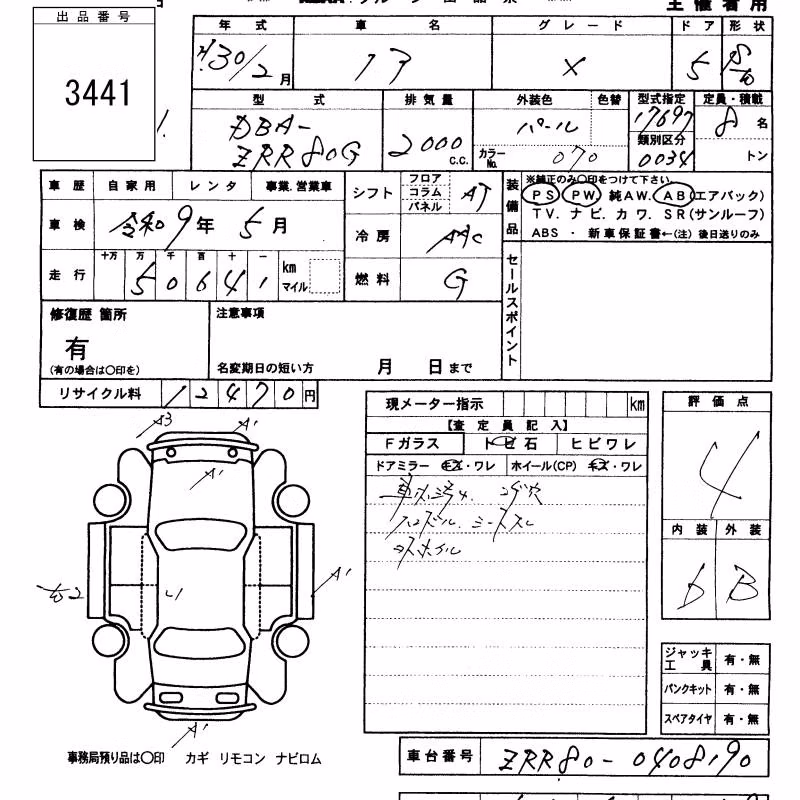 出品番号
3441
主催者用
年式 車名 グレード ドア 形状
H30/2月 ノア X 5
型式 排気量 外装色 色替 型式指定 定員・積載
DBA-ZRR80G 2000 C.C. パール 17697 8名
カラーNo. 070 類別区分 0034 トン
車歴 自家用 レンタ 事業.営業車
車検 令和9年5月
走行 十万 万 千 百 十 一
50641 km マイル
シフト フロア コラム パネル AT
冷房 AAC
燃料 G
装備品
※純正のみ〇印をつけて下さい。
PS PW. 純AW. AB(エアバック)
TV. ナビ. カワ. SR(サンルーフ)
ABS ・ 新車保証書←(注) 後日送りのみ
セールスポイント
修復歴 箇所
有
(有の場合は〇印を)
注意事項
名変期日の短い方 月 日まで
リサイクル料 12470円
現メーター指示 km
【査定員記入】
Fガラス トビ石 ヒビワレ
ドアミラー キズ・ワレ ホイール(CP) キズ・ワレ
車内汚れ. コゲ穴
ハンドル. シートスレ
評価点
4
内装 外装
B
A3
A1
A1
A1
A1
ジャッキ工具 有・無
パンクキット 有・無
スペアタイヤ 有・無
事務局預り品は〇印 カギ リモコン ナビロム
車台番号 ZRR80-0408190